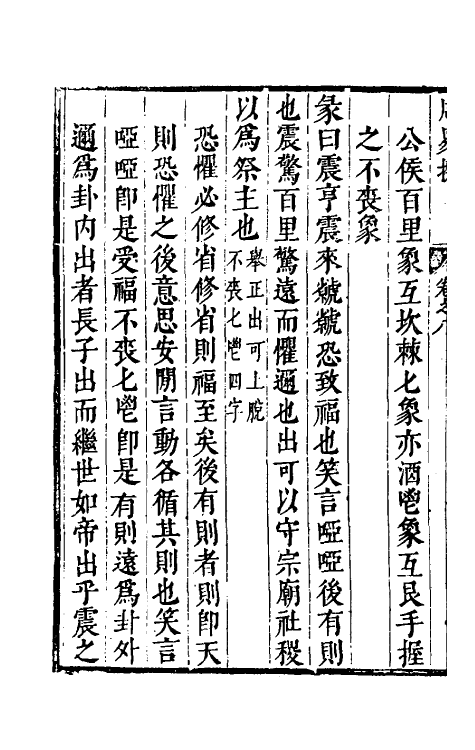 卷之八
公侯百里象互坎棘匕象亦酒鬯象互艮手握
之不喪象
彖曰震亨震來虩虩恐致福也笑言啞啞後有則
也震驚百里驚遠而懼邇也出可以守宗廟社稷
以爲祭主也舉正出可上脫
不喪匕鬯四字
恐懼必修省修省則福至矣後有則者則卽天
則恐懼之後意思安閒言動各循其則也笑言
啞啞卽是受福不喪匕鬯卽是有則遠爲卦外
邇爲卦內出者長子出而繼世如帝出乎震之